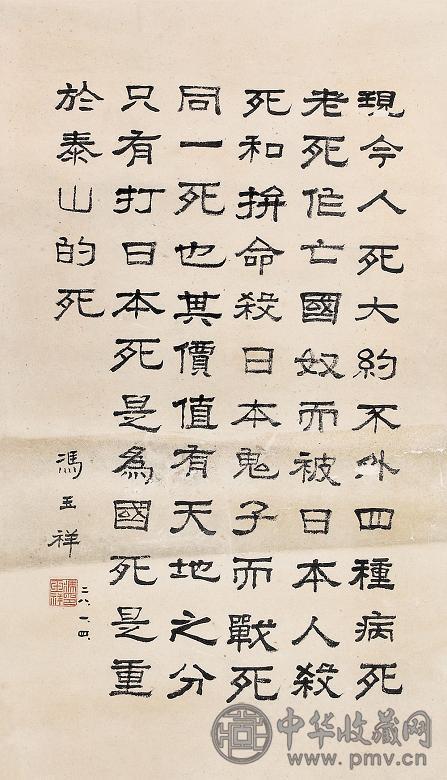 現今人死大約不外四種病死
老死作亡國奴而被日本人殺
死和拚命殺日本鬼子而戰死
同一死也其價值有天地之分
只有打日本死是為國死是重
於泰山的死
馮玉祥
二八、一、四、
中华收藏网
www.pmv.cn